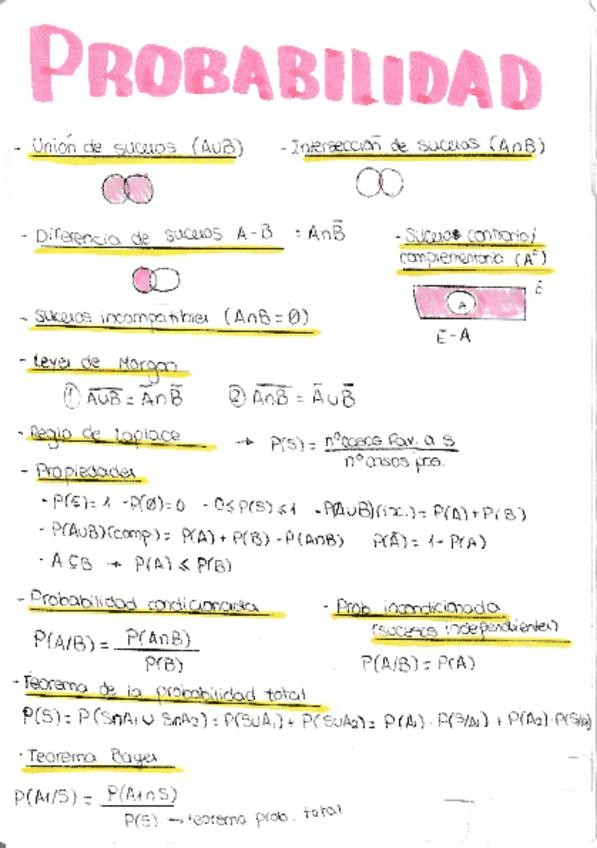 PROBABILIDAD
- Unión de sucesos (A∪B)
- Intersección de sucesos (A∩B)
- Diferencia de sucesos A-B : A∩B̅
- Suceso contrario/
complementario (Aᶜ)
A
E
E-A
- Sucesos incompatibles (A∩B=Ø)
- Leyes de Morgan
① A∪B̅ = A̅∩B̅ ② A∩B̅ = A̅∪B̅
- Regla de Laplace → P(S) = nº casos fav. a S
nº casos pos.
- Propiedades
- P(E)=1 - P(Ø)=0 - 0≤P(S)≤1 - P(A∪B)(inc.) = P(A)+P(B)
- P(A∪B)(comp) = P(A) + P(B) - P(A∩B) P(A̅) = 1-P(A)
- A⊆B → P(A) ≤ P(B)
- Probabilidad condicionada
P(A/B) = P(A∩B)
P(B)
- Prob incondicionada
(sucesos independientes)
P(A/B) = P(A)
- Teorema de la probabilidad total
P(S) = P(S∩A₁ ∪ S∩A₂) = P(S∪A₁) + P(S∪A₂) = P(A₁) · P(S/A₁) + P(A₂) · P(S/A₂)
- Teorema Bayes
P(A1/S) = P(A1∩S)
P(S) → teorema prob. total